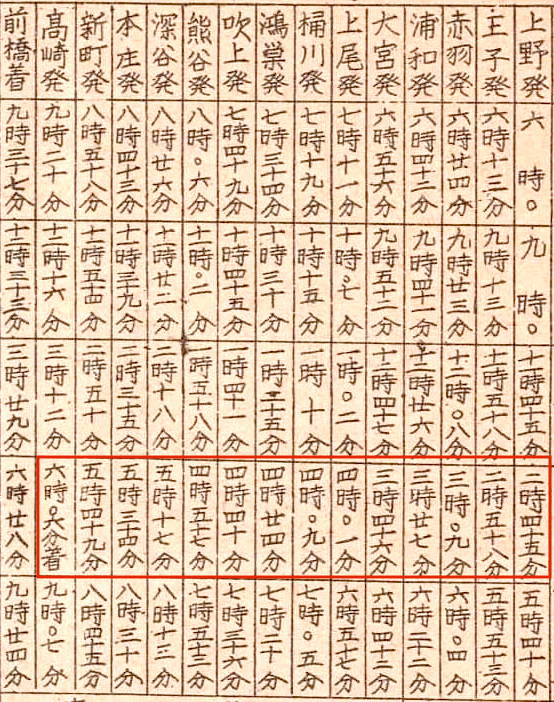 上野発 六時〇 九時〇 十一時四十五分 二時四十五分 五時四十分
王子発 六時十三分 九時十三分 十一時五十八分 二時五十八分 五時五十三分
赤羽発 六時廿四分 九時廿三分 十二時〇八分 三時〇九分 六時〇四分
浦和発 六時四十二分 九時四十一分 十二時廿六分 三時廿七分 六時二十二分
大宮発 六時五十六分 九時五十二分 十二時四十七分 三時四十六分 六時四十二分
上尾発 七時十一分 十時〇七分 一時〇二分 四時〇一分 六時五十七分
桶川発 七時十九分 十時十五分 一時十分 四時〇九分 七時〇五分
鴻巣発 七時三十四分 十時三十分 一時二十五分 四時廿四分 七時二十分
吹上発 七時四十九分 十時四十五分 一時四十一分 四時四十分 七時三十六分
熊谷発 八時〇六分 十一時〇二分 一時五十八分 四時五十七分 七時五十三分
深谷発 八時廿六分 十一時廿二分 二時十八分 五時十七分 八時十三分
本庄発 八時四十三分 十一時三十九分 二時三十五分 五時三十四分 八時三十分
新町発 八時五十八分 十一時五十四分 二時五十分 五時四十九分 八時四十五分
高崎発 九時二十分 十二時十六分 三時十二分 六時〇六分着 九時〇七分
前橋着 九時三十七分 十二時三十三分 三時廿九分 六時廿八分 九時廿四分